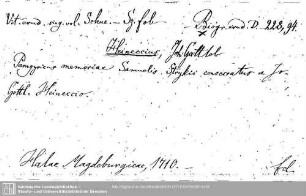 Vit. erud. aug. vol. Schue. – Sq. fol. Biogr. erud. D. 223, 94.
Heineccius, Joh. Gottlob
Panegyricus memoriae Samuelis Strykii consecratus a Jo.
Gottl. Heineccio.
Halae Magdeburgicae, 1710. –
Sächsische Landesbibliothek –
Staats- und Universitätsbibliothek Dresden